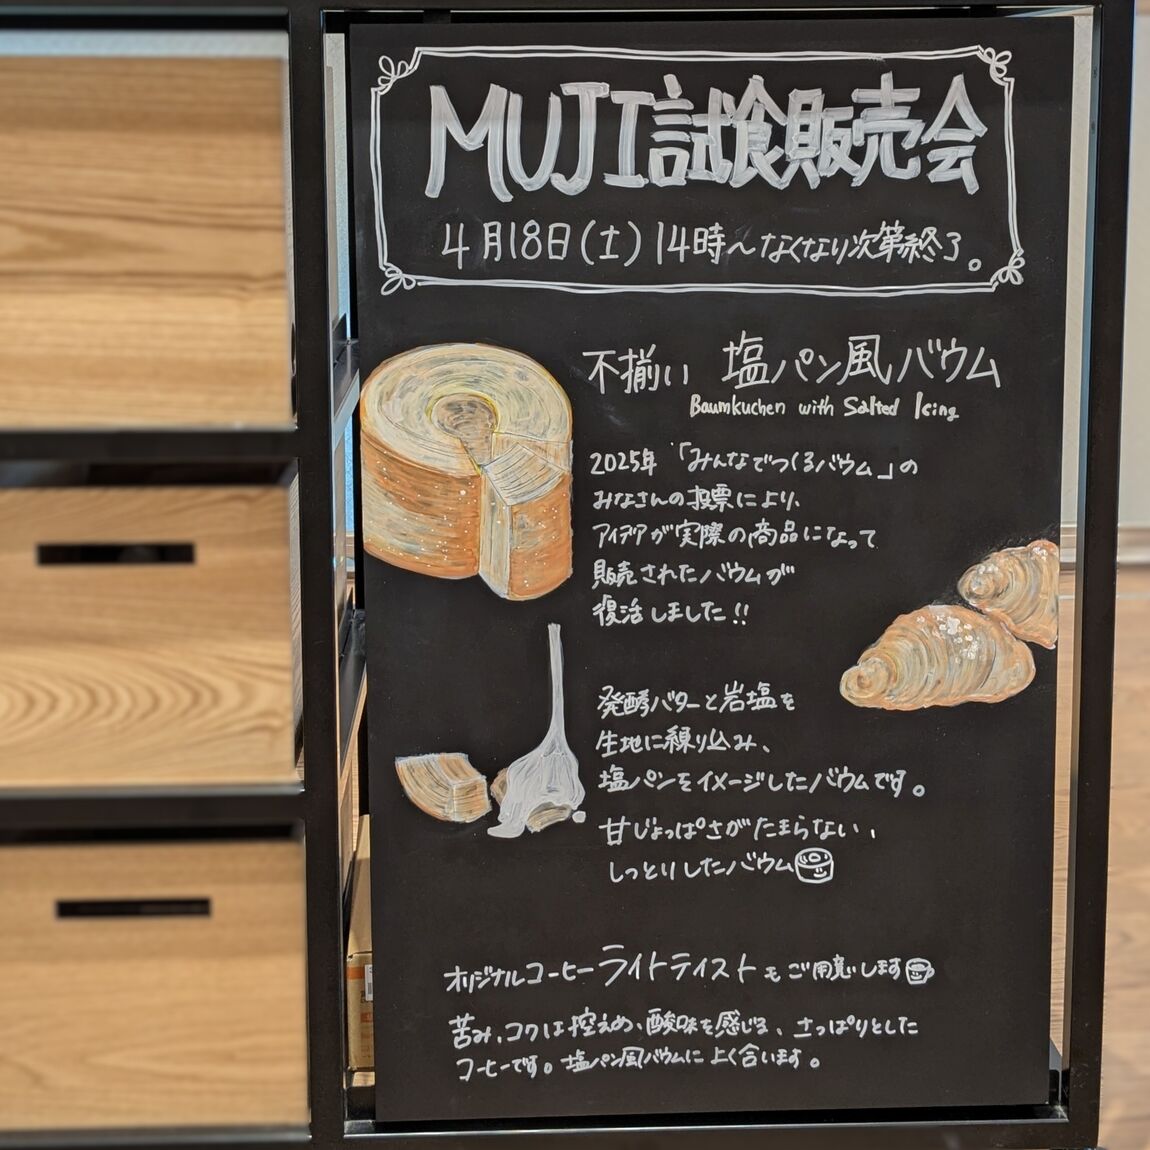 MUJI試食販売会
4月18日(土)14時～なくなり次第終了。
不揃い 塩パン風バウム
Baumkuchen with Salted Icing
2025年「みんなでつくるバウム」の
みなさんの投票により、
アイデアが実際の商品になって
販売されたバウムが
復活しました!!
発酵バターと岩塩を
生地に練り込み、
塩パンをイメージしたバウムです。
甘じょっぱさがたまらない、
しっとりしたバウム
オリジナルコーヒーライトテイストもご用意します
苦み、コクは控えめ、酸味を感じる、さっぱりとした
コーヒーです。塩パン風バウムによく合います。